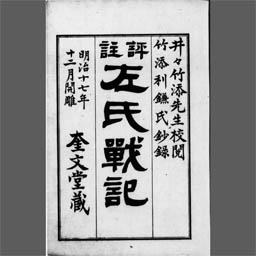 井々竹添先生校閲
竹添利鎌氏鈔録
評註
左氏戰記
明治十七年
十二月開雕
奎文堂藏